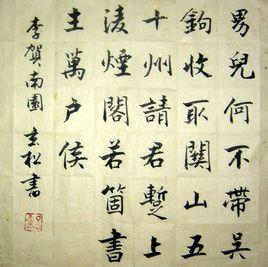 男兒何不帶吳
鉤收取關山五
十州請君暫上
淩煙閣若箇書
生萬戶侯
李賀南園 玄松書